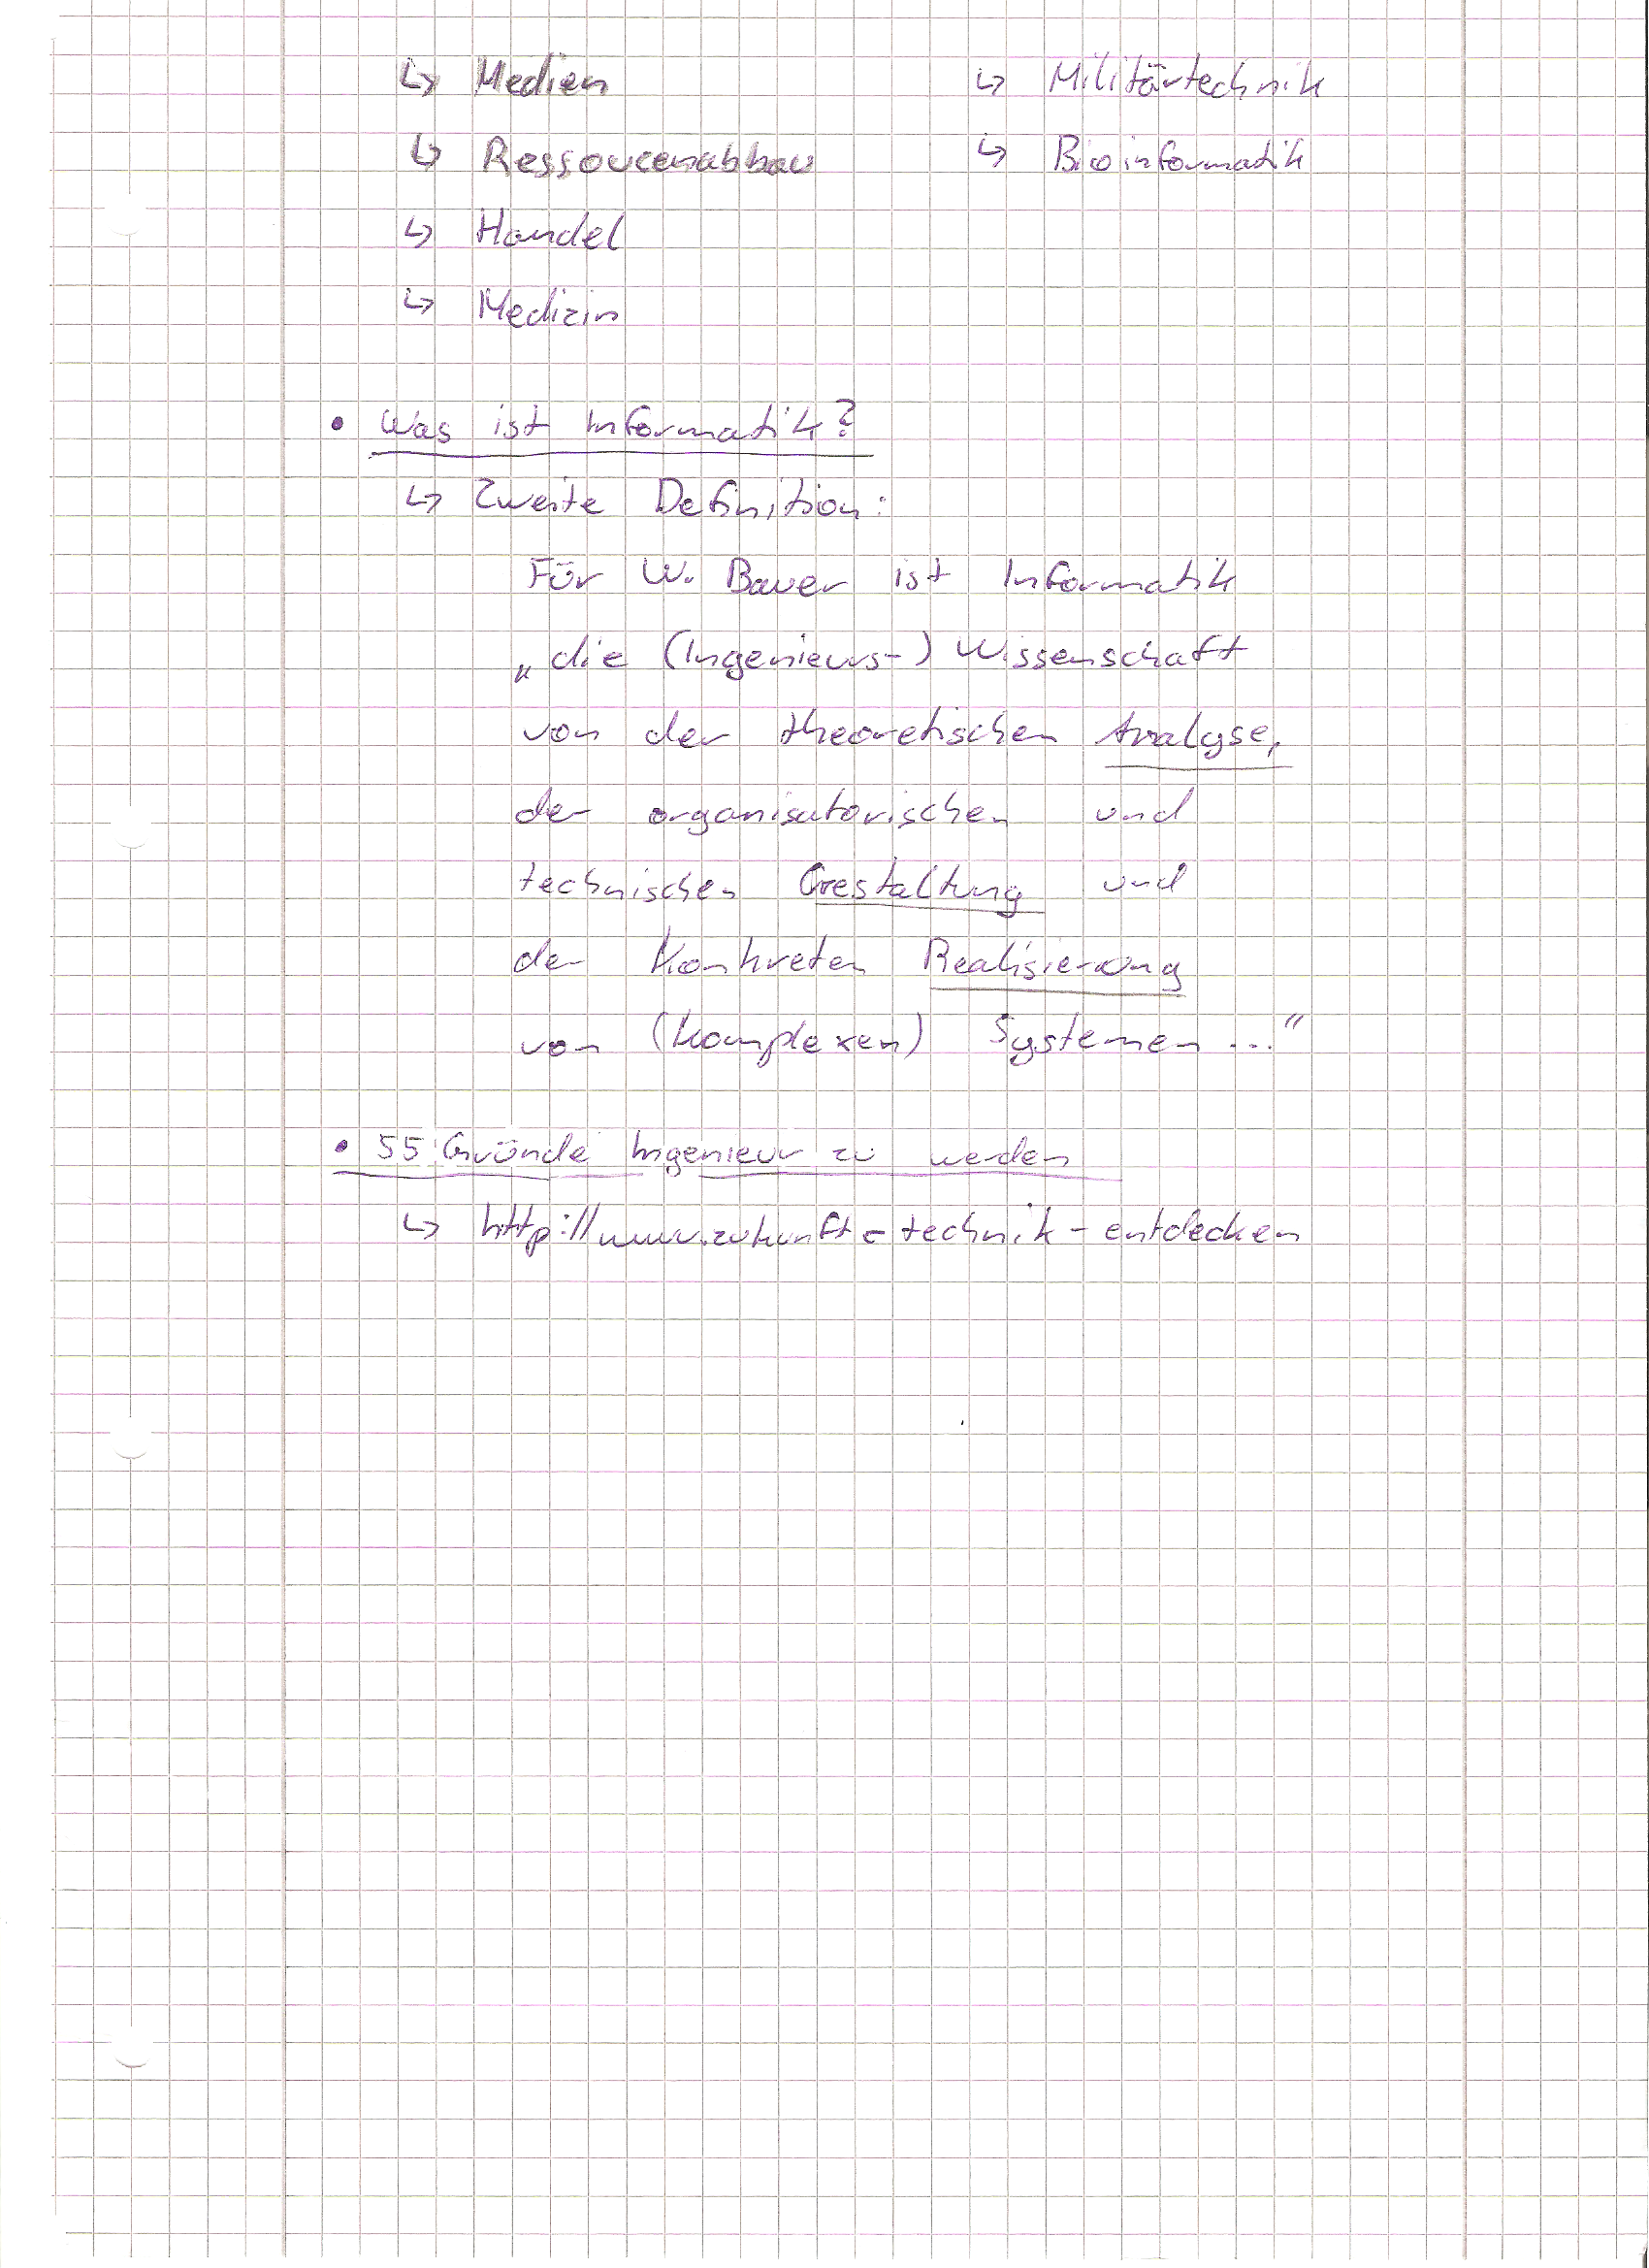 ↳ Medien
↳ Ressoucenabbau
↳ Handel
↳ Medizin
↳ Militärtechnik
↳ Bioinformatik
• Was ist Informatik?
↳ Zweite Definition:
Für W. Bauer ist Informatik
„die (Ingenieurs-) Wissenschaft
von der theoretischen Analyse,
der organisatorischen und
technischen Gestaltung und
der konkreten Realisierung
von (komplexen) Systemen ..."
• 55 Gründe Ingenieur zu werden
↳ http://www.zukunft-technik-entdecken